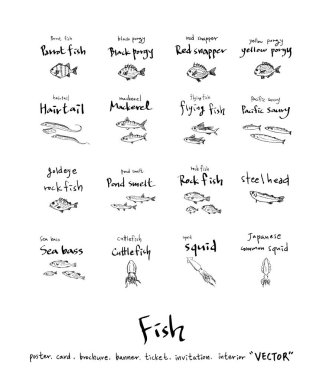 Parrot fish
Parrot fish
black porgy
Black porgy
red snapper
Red snapper
yellow porgy
yellow porgy
hairtail
Hairtail
mackerel
Mackerel
flying fish
flying fish
Pacific saury
Pacific saury
goldeye
rockfish
Pond smelt
Pond smelt
rock fish
Rock fish
steelhead
Sea bass
Sea bass
Cuttlefish
Cuttlefish
squid
squid
Japanese
common squid
Fish
poster. card. brochure. banner. ticket. invitation. interior "VECTOR"